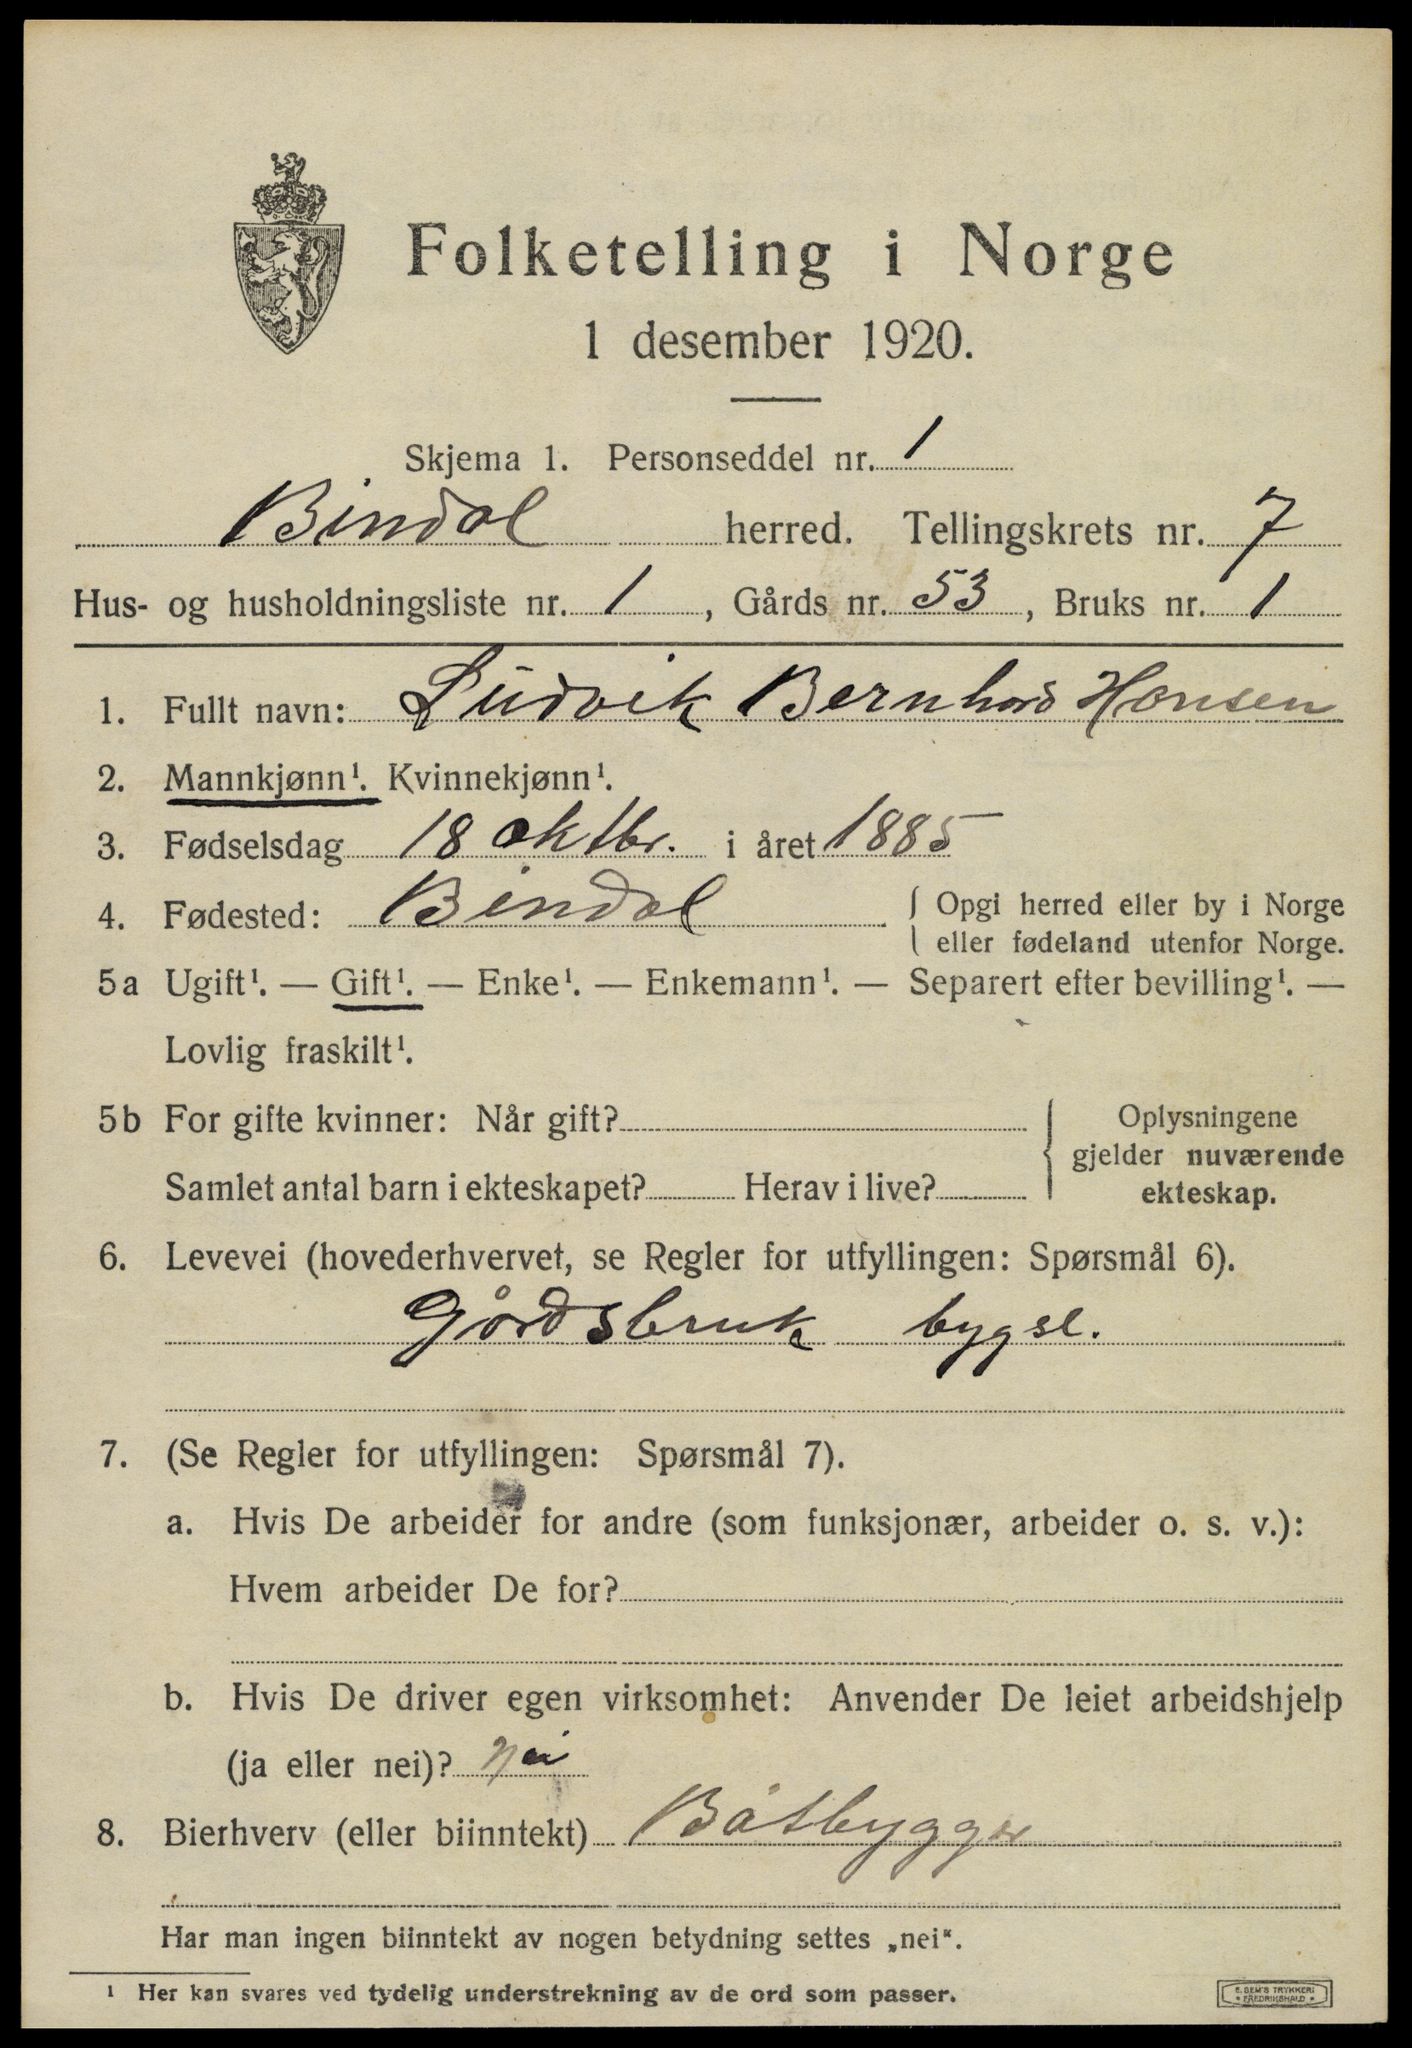 Folketelling i Norge
1 desember 1920.
Skjema 1. Personseddel nr. 1
Bindal herred. Tellingskrets nr. 7
Hus- og husholdningsliste nr. 1, Gårds nr. 53, Bruks nr. 1
1. Fullt navn: Ludvik Bernhard Hansen
2. Mannkjønn¹. Kvinnekjønn¹.
3. Fødselsdag 18 oktbr. i året 1885
4. Fødested: Bindal { Opgi herred eller by i Norge
eller fødeland utenfor Norge.
5a Ugift¹. — Gift¹. — Enke¹. — Enkemann¹. — Separert efter bevilling¹. —
Lovlig fraskilt¹.
5b For gifte kvinner: Når gift?
Samlet antal barn i ekteskapet? Herav i live?
Oplysningene
gjelder nuværende
ekteskap.
6. Levevei (hovederhvervet, se Regler for utfyllingen: Spørsmål 6).
Gårdsbruk bygsl.
7. (Se Regler for utfyllingen: Spørsmål 7).
a. Hvis De arbeider for andre (som funksjonær, arbeider o. s. v.):
Hvem arbeider De for?
b. Hvis De driver egen virksomhet: Anvender De leiet arbeidshjelp
(ja eller nei)? nei
8. Bierhverv (eller biinntekt) Båtbygger
Har man ingen biinntekt av nogen betydning settes „nei“.
¹ Her kan svares ved tydelig understrekning av de ord som passer.
E. SEM'S TRYKKERI
* FREDRIKSHALD *